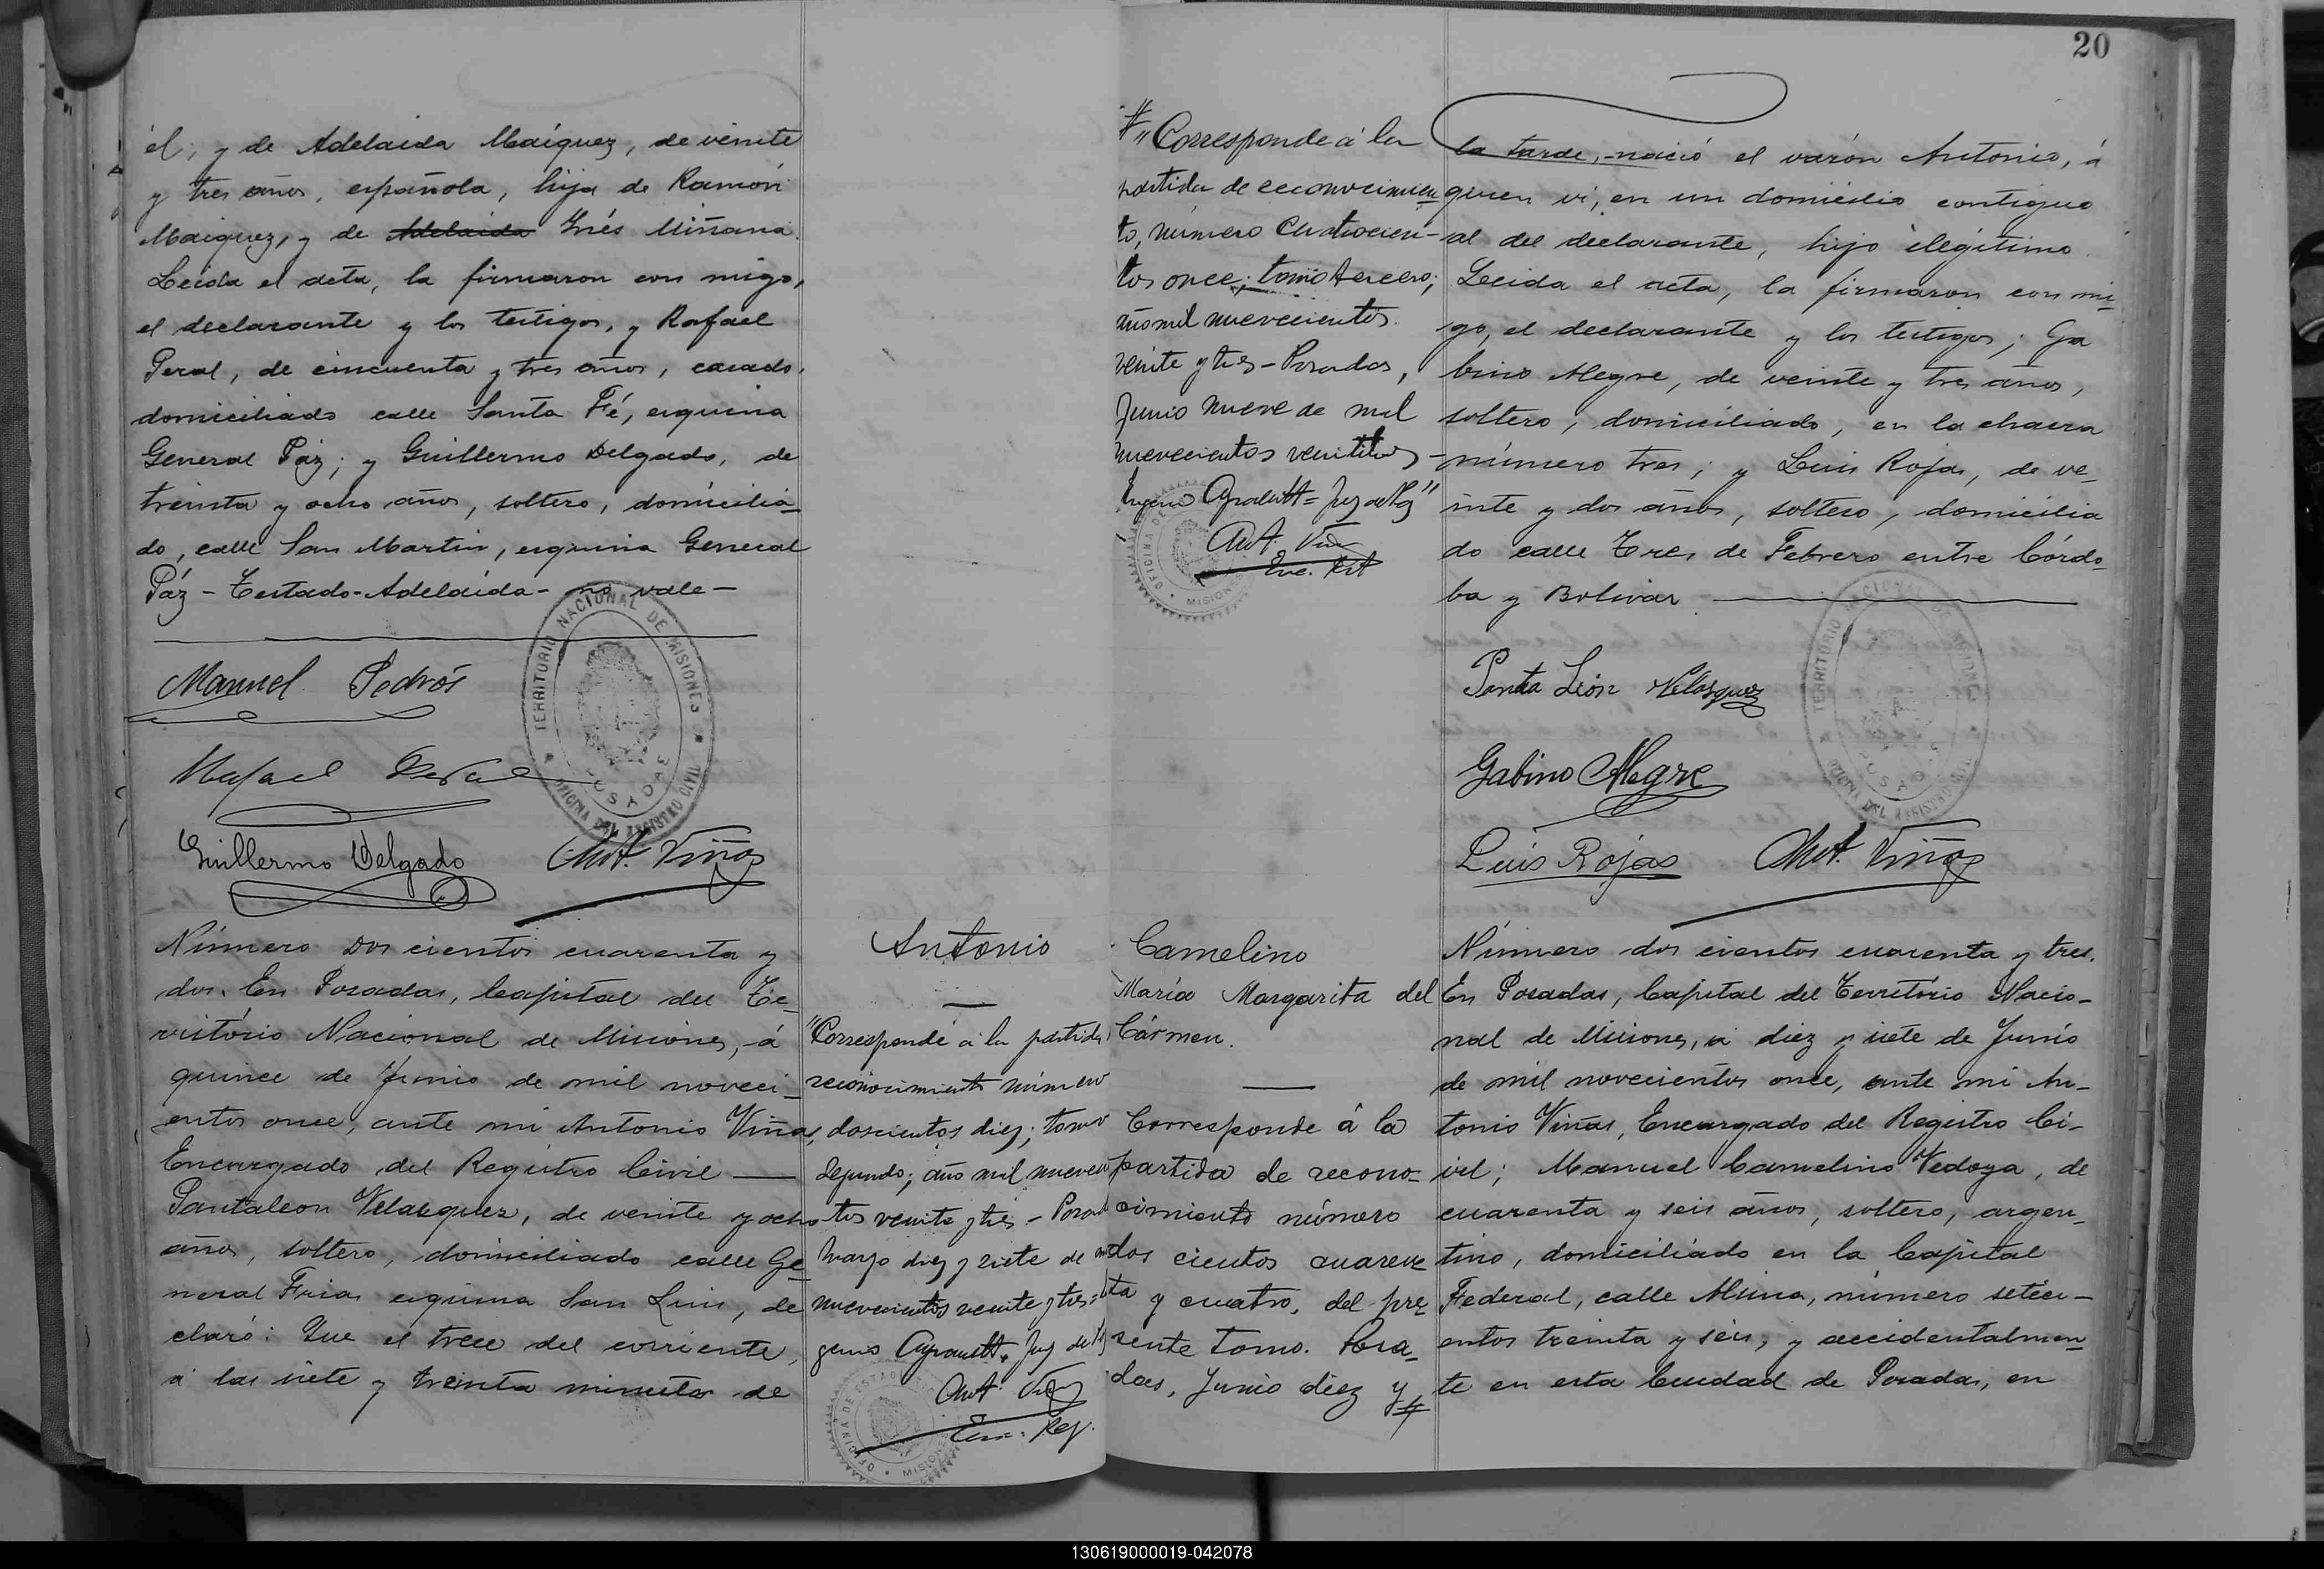 él, y de Adelaida Maiquez, de veinte
y tres años, española, hija de Ramón
Maiquez, y de Adelaida Inés Miñana.
Leida el acta, la firmaron con migo,
el declarante y los testigos, y Rafael
Peral, de cincuenta y tres años, casado,
domiciliado calle Santa Fé, esquina
General Paz; y Guillermo Delgado, de
treinta y ocho años, soltero, domicilia-
do, calle San Martin, esquina General
Páz - Testado - Adelaida - no vale -
Manuel Pedrós
Rafael Peral
Guillermo Delgado
Ant. Viñas
TERRITORIO NACIONAL DE MISIONES
POSADAS
OFICINA DEL REGISTRO CIVIL
Número dos cientos cuarenta y
dos. En Posadas, Capital del Te-
rritório Nacional de Misiones, á
quince de Junio de mil noveci-
entos once, ante mi Antonio Viñas,
Encargado del Registro Civil
Pantaleon Velasquez, de veinte y ocho
años, soltero, domiciliado calle Ge-
neral Frias esquina San Luis, de
claró: Que el trece del corriente,
á las siete y treinta minutos de
Antonio
"Corresponde á la partida
reconocimiento número
doscientos diez; tomo
segundo; año mil novecien
tos veinte y tres - Posad
Mayo diez y siete de
novecientos veinte y tres
Ant. Viñas
Enc. Reg.
20
# "Corresponde á la
partida de reconocimien
to, número Cuatrocien-
tos once; tomo tercero;
año mil novecientos
veinte y tres - Posadas,
Junio nueve de mil
novecientos veintitres -
Ant. Viñas
la tarde, nació el varón Antonio, á
quien vi, en un domicilio contiguo
al del declarante, hijo ilegitimo.
Leida el acta, la firmaron con mi-
go, el declarante y los testigos; Ga
bino Alegre, de veinte y tres años,
soltero, domiciliado, en la chacra
número tres; y Luis Rojas, de ve-
inte y dos años, soltero, domicilia
do calle Tres de Febrero entre Córdo-
ba y Bolivar
Panta León Velasquez
Gabino Alegre
Luis Rojas
Ant. Viñas
Camelino
María Margarita del
Cármen.
Corresponde á la
partida de recono-
cimiento número
dos cientos cuaren
ta y cuatro, del pre-
sente tomo. Posa-
das, Junio diez y #
Número dos cientos cuarenta y tres.
En Posadas, Capital del Territorio Nacio-
nal de Misiones, á diez y siete de Junio
de mil novecientos once, ante mi An-
tonio Viñas, Encargado del Registro Ci-
vil; Manuel Camelino Vedoya, de
cuarenta y seis años, soltero, argen-
tino, domiciliado en la Capital
Federal, calle Alsina, número seteci-
entos treinta y seis, y accidentalmen-
te en esta Ciudad de Posadas, en
130619000019-042078